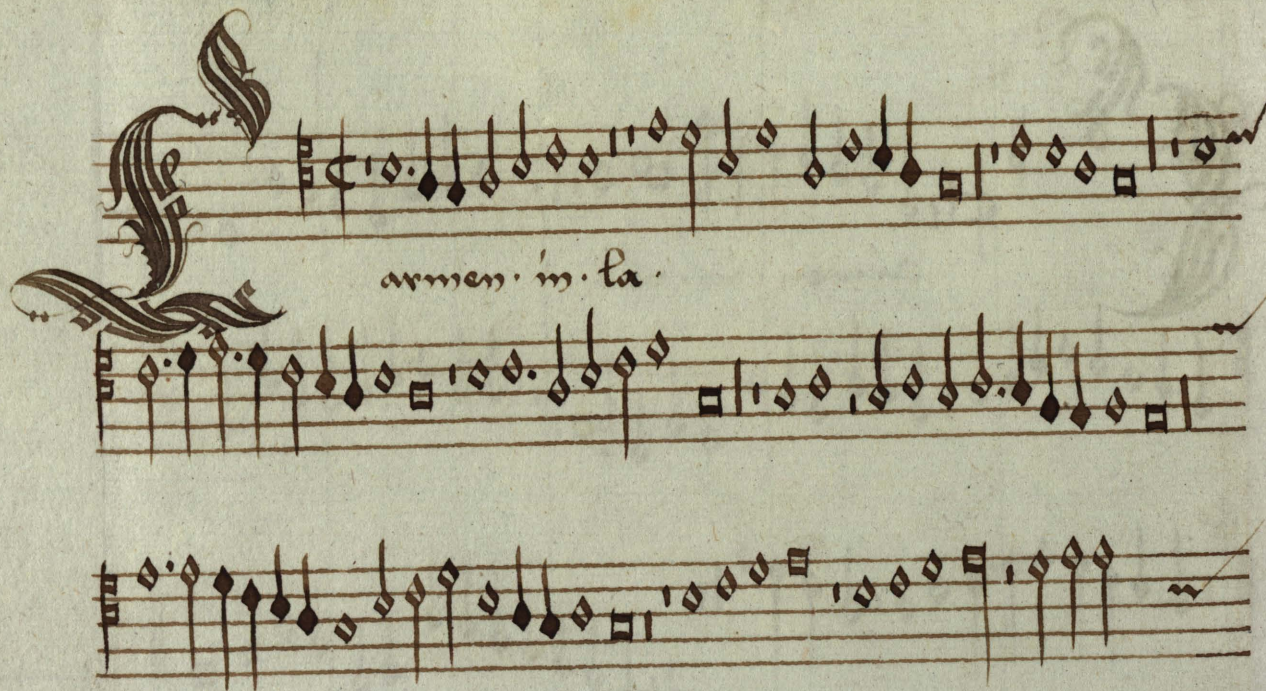 Carmen · in · la ·